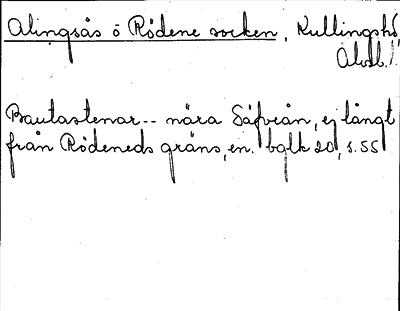 Alingsås o Rödene socken, Kullings hd,
Älvsb. l.
Bautastenar -- nära Säfveån, ej långt
från Rödeneds gräns, en. bqlk 20, s. 55